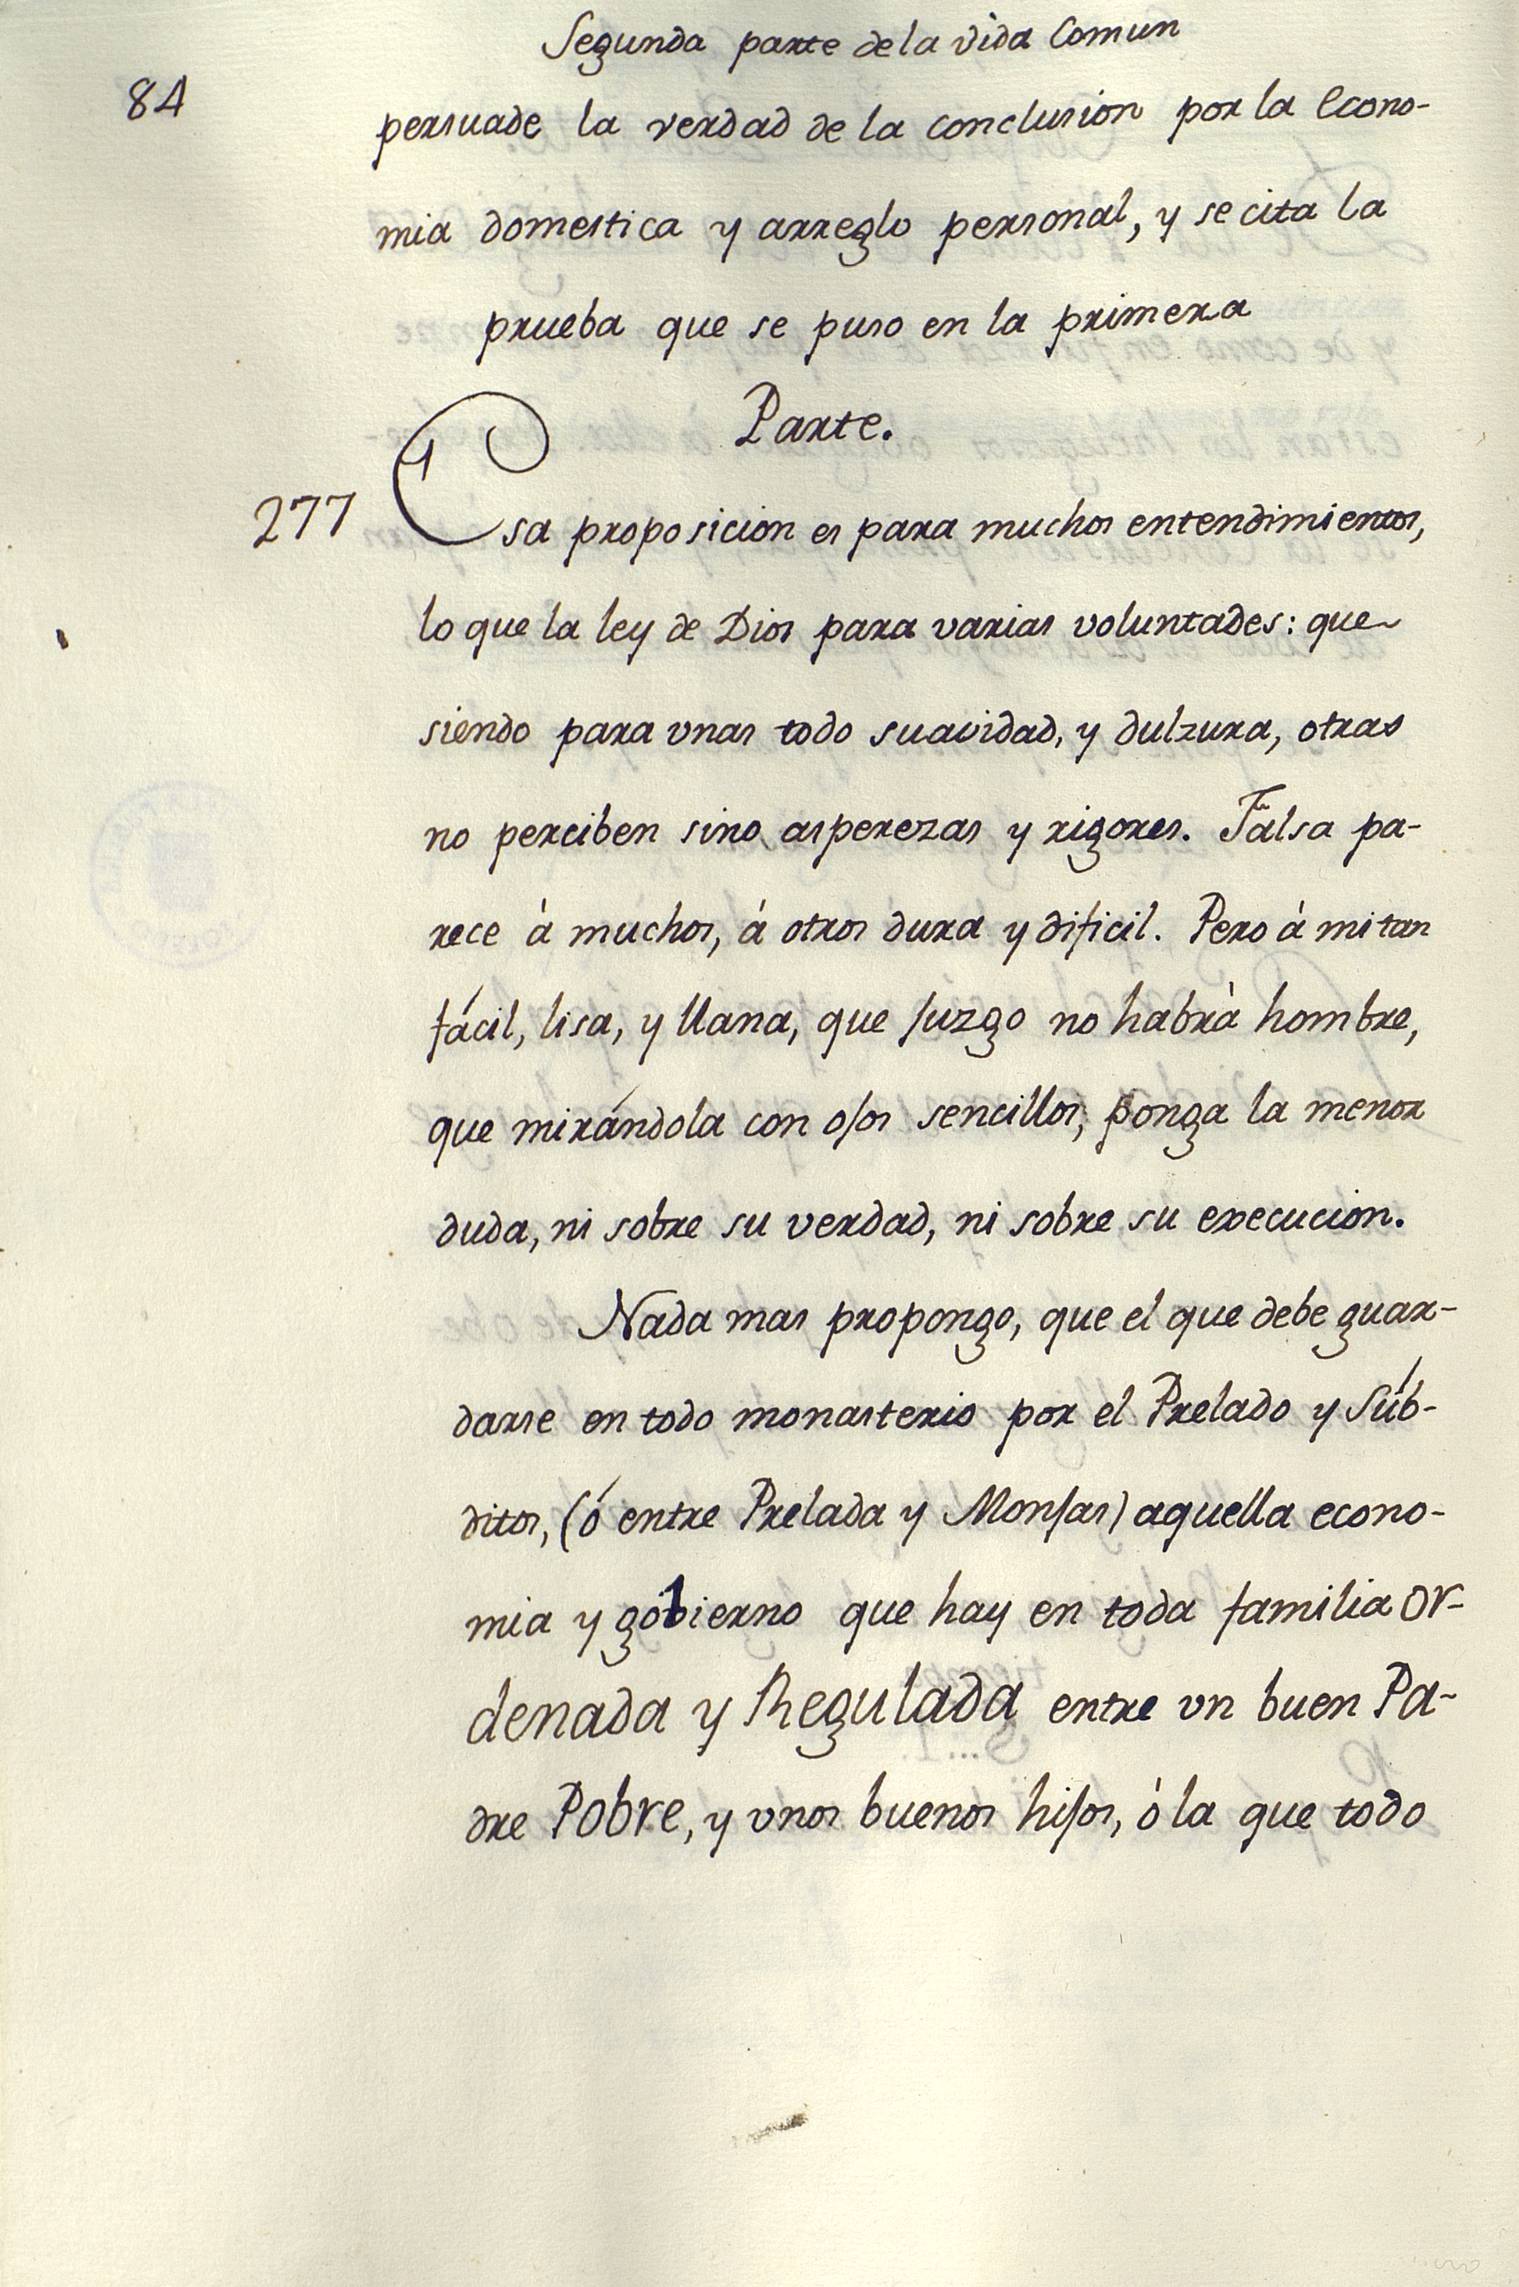 Segunda parte de la vida Comun
84
persuade la verdad de la conclusion por la Econo-
mia domestica y arreglo personal, y se cita la
prueba que se puso en la primera
Parte.
277 Esa proposicion es para muchos entendimientos,
lo que la ley de Dios para varias voluntades: que
siendo para unas todo suavidad, y dulzura, otras
no perciben sino asperezas y rigores. Falsa pa-
rece á muchos, á otros dura y dificil. Pero á mi tan
fácil, lisa, y llana, que juzgo no habrà hombre,
que mirándola con ojos sencillos, ponga la menor
duda, ni sobre su verdad, ni sobre su execucion.
Nada mas propongo, que el que debe guar-
darse en todo monasterio por el Prelado y Súb-
ditos, (ó entre Prelada y Monjas) aquella econo-
mia y gobierno que hay en toda familia or-
denada y Regulada entre un buen Pa-
dre Pobre, y unos buenos hijos, ó la que todo